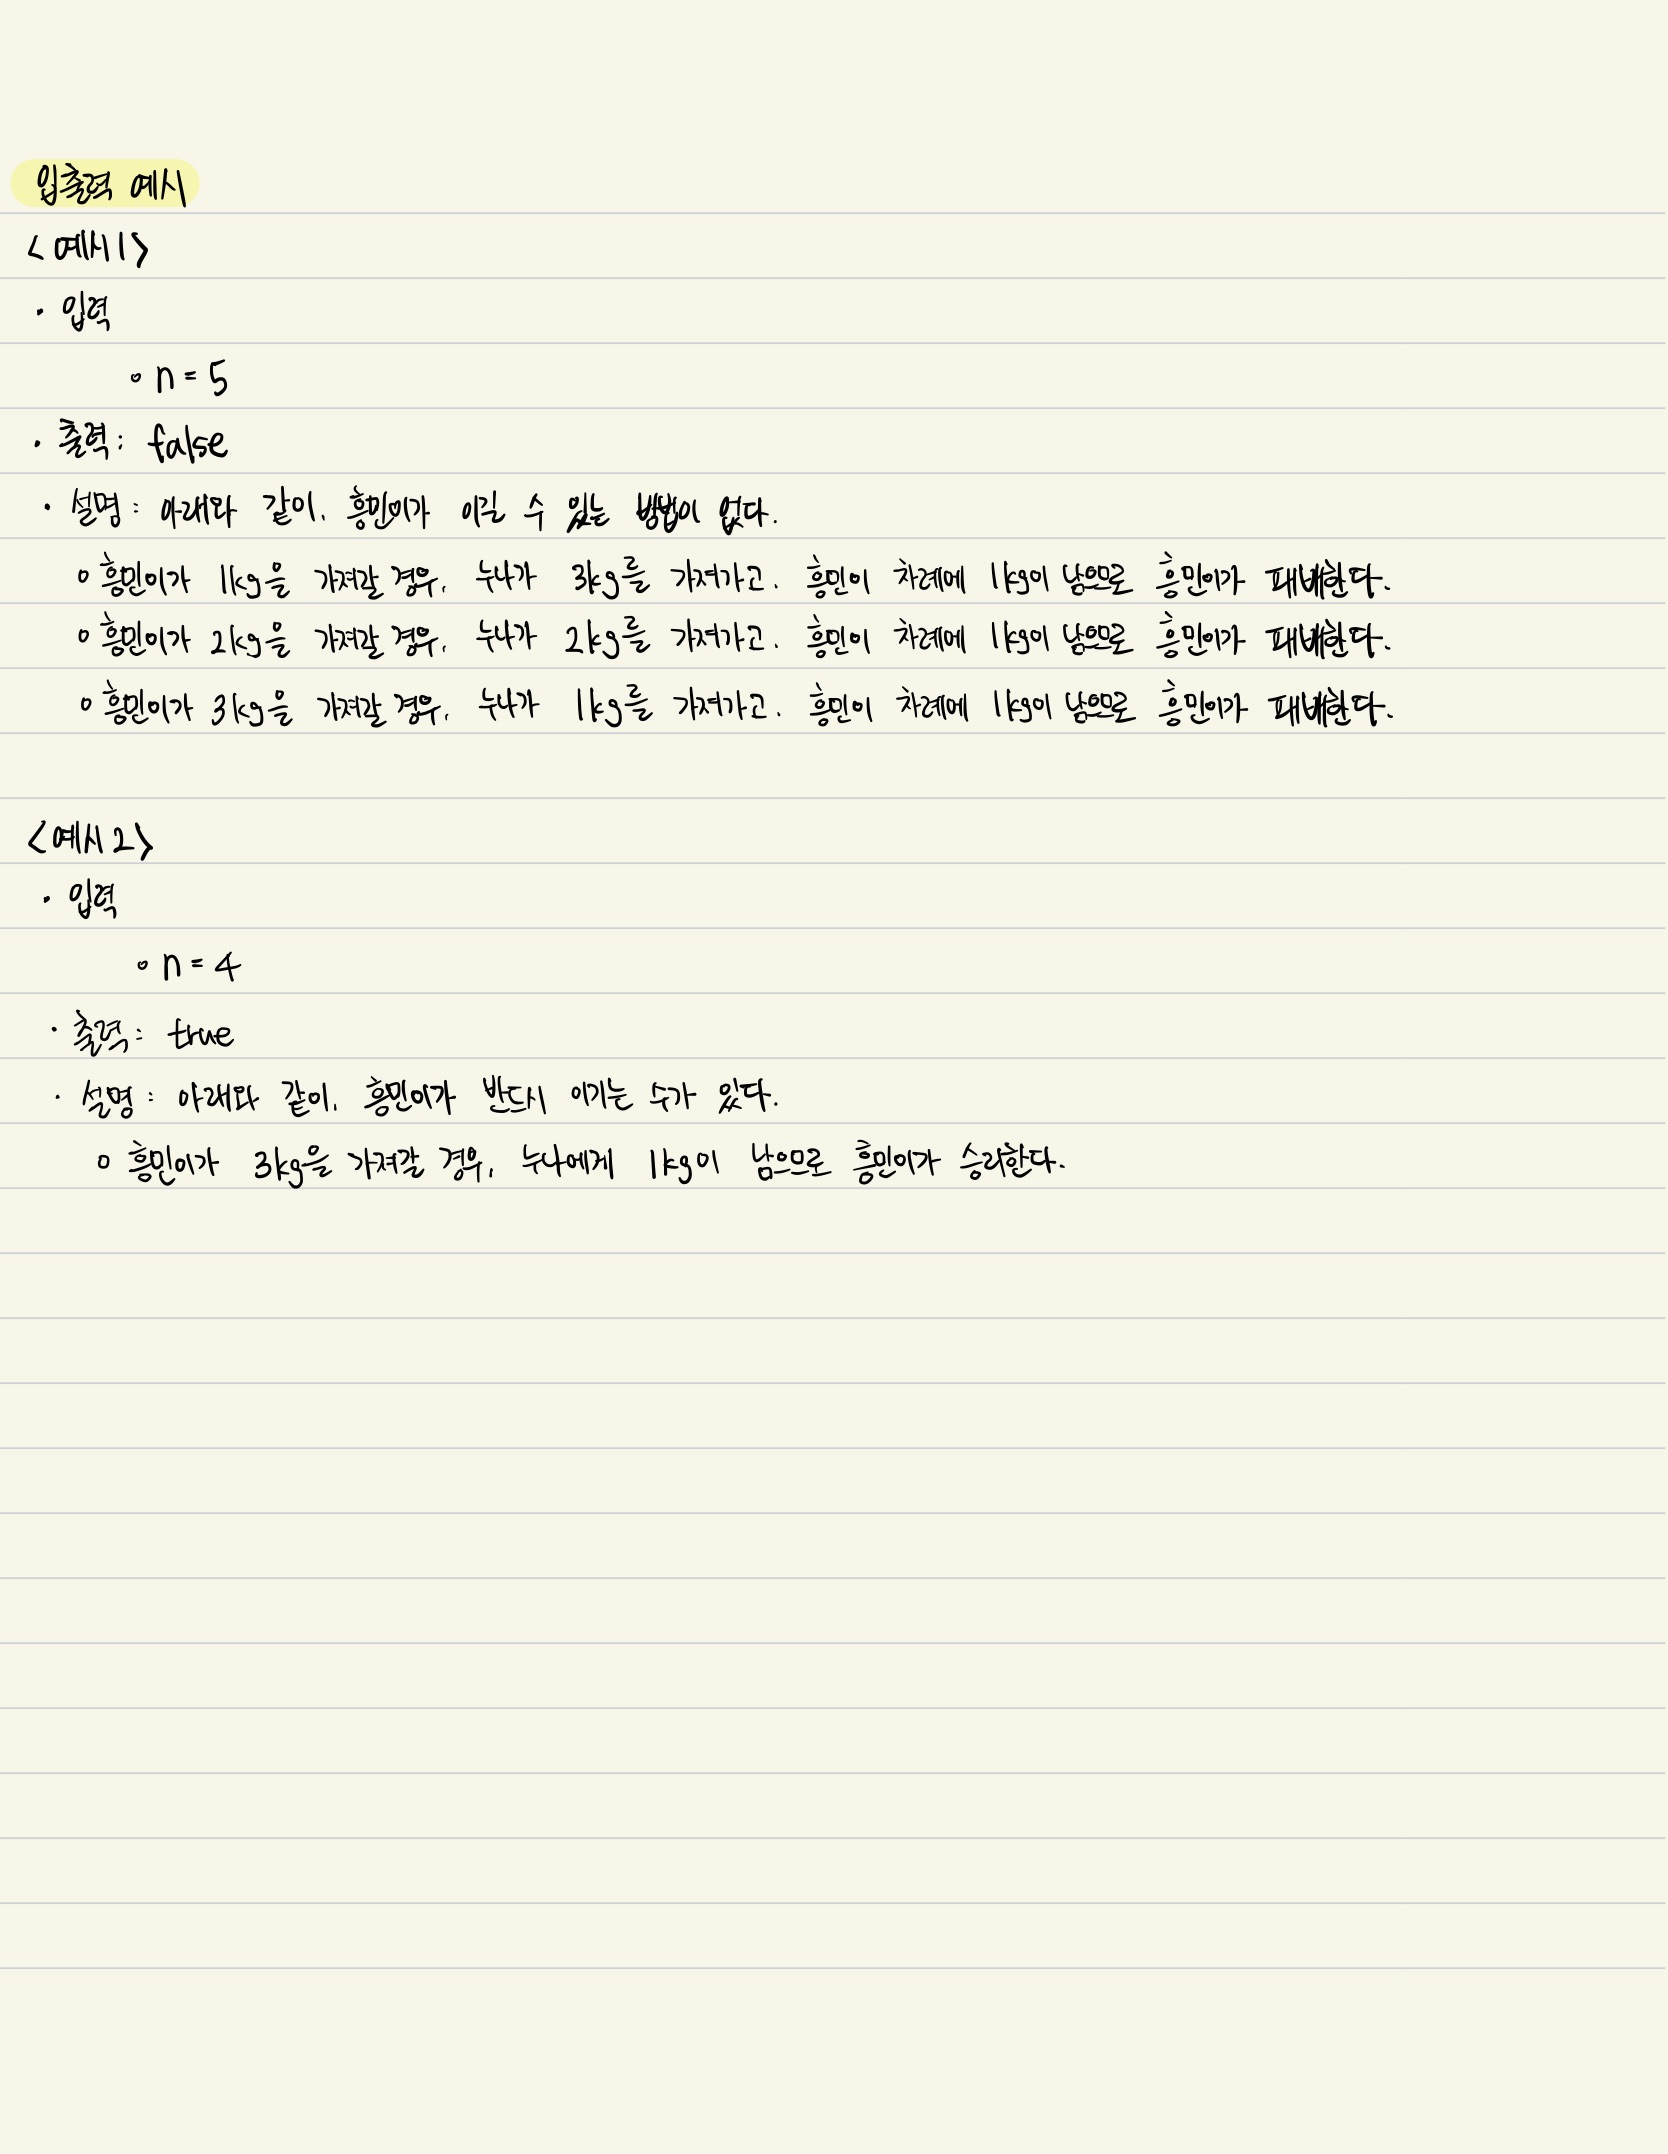 입출력 예시
<예시1>
· 입력
◦ n = 5
· 출력: false
· 설명: 아래와 같이, 흥민이가 이길 수 있는 방법이 없다.
◦ 흥민이가 1kg을 가져갈 경우, 누나가 3kg를 가져가고, 흥민이 차례에 1kg이 남으므로 흥민이가 패배한다.
◦ 흥민이가 2kg을 가져갈 경우, 누나가 2kg를 가져가고, 흥민이 차례에 1kg이 남으므로 흥민이가 패배한다.
◦ 흥민이가 3kg을 가져갈 경우, 누나가 1kg를 가져가고, 흥민이 차례에 1kg이 남으므로 흥민이가 패배한다.
<예시2>
· 입력
◦ n = 4
· 출력: true
· 설명: 아래와 같이, 흥민이가 반드시 이기는 수가 있다.
◦ 흥민이가 3kg을 가져갈 경우, 누나에게 1kg이 남으므로 흥민이가 승리한다.